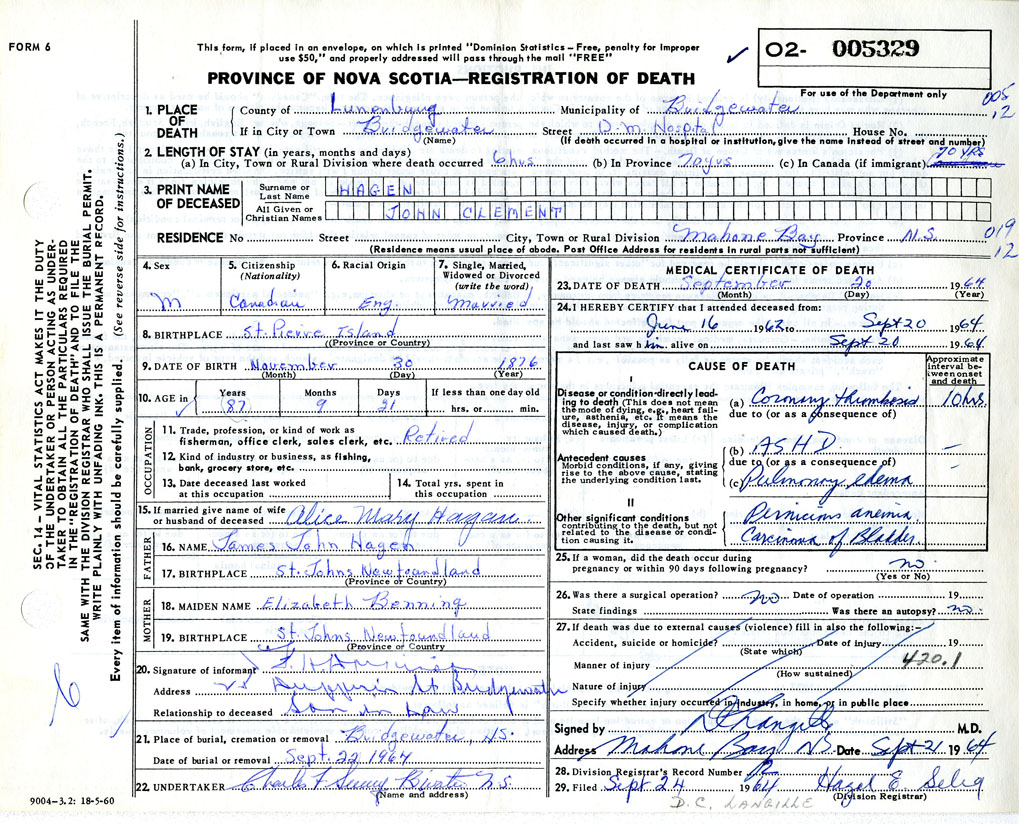 FORM 6
This form, if placed in an envelope, on which is printed "Dominion Statistics – Free, penalty for improper
use $50," and properly addressed will pass through the mail "FREE"
PROVINCE OF NOVA SCOTIA—REGISTRATION OF DEATH
O2- 005329
For use of the Department only
005
12
SEC. 14 – VITAL STATISTICS ACT MAKES IT THE DUTY
OF THE UNDERTAKER OR PERSON ACTING AS UNDER-
TAKER TO OBTAIN ALL THE PARTICULARS REQUIRED
IN THE "REGISTRATION OF DEATH" AND TO FILE THE
SAME WITH THE DIVISION REGISTRAR WHO SHALL ISSUE THE BURIAL PERMIT.
WRITE PLAINLY WITH UNFADING INK. THIS IS A PERMANENT RECORD.
Every item of information should be carefully supplied. (See reverse side for instructions.)
1. PLACE OF DEATH
County of Lunenburg Municipality of Bridgewater
If in City or Town Bridgewater Street D.M. Hospital House No.
(Name) (If death occurred in a hospital or institution, give the name instead of street and number)
2. LENGTH OF STAY (in years, months and days)
(a) In City, Town or Rural Division where death occurred 6 hrs (b) In Province 70 yrs (c) In Canada (if immigrant) 70 yrs
3. PRINT NAME OF DECEASED
Surname or Last Name HAGEN
All Given or Christian Names JOHN CLEMENT
RESIDENCE No Street City, Town or Rural Division Mahone Bay Province N.S.
019
12
(Residence means usual place of abode. Post Office Address for residents in rural parts not sufficient)
4. Sex
M
5. Citizenship (Nationality)
Canadian
6. Racial Origin
Eng.
7. Single, Married, Widowed or Divorced (write the word)
Married
8. BIRTHPLACE St. Pierre Island
(Province or Country)
9. DATE OF BIRTH November 30 1876
(Month) (Day) (Year)
10. AGE in Years Months Days If less than one day old
87 9 21 hrs. or min.
OCCUPATION
11. Trade, profession, or kind of work as
fisherman, office clerk, sales clerk, etc. Retired
12. Kind of industry or business, as fishing,
bank, grocery store, etc.
13. Date deceased last worked
at this occupation
14. Total yrs. spent in
this occupation
15. If married give name of wife
or husband of deceased Alice Mary Hagan
FATHER
16. NAME James John Hagen
17. BIRTHPLACE St. Johns Newfoundland
(Province or Country)
MOTHER
18. MAIDEN NAME Elizabeth Benning
19. BIRTHPLACE St. Johns Newfoundland
(Province or Country
20. Signature of informant
Address Dufferin St Bridgewater
Relationship to deceased Son in Law
21. Place of burial, cremation or removal Bridgewater, N.S.
Date of burial or removal Sept. 22 1964
22. UNDERTAKER Charles N.S.
(Name and address)
9004–3.2: 18-5-60
MEDICAL CERTIFICATE OF DEATH
23. DATE OF DEATH September 20 1964
(Month) (Day) (Year)
24. I HEREBY CERTIFY that I attended deceased from:
June 16 1962 to Sept 20 1964
and last saw him alive on Sept 20 1964
CAUSE OF DEATH
Approximate interval between onset and death
I
Disease or condition directly lead-
ing to death (This does not mean
the mode of dying, e.g., heart fail-
ure, asthenia, etc. It means the
disease, injury, or complication
which caused death.)
(a) Coronary thrombosis 10 hrs.
due to (or as a consequence of)
Antecedent causes
Morbid conditions, if any, giving
rise to the above cause, stating
the underlying condition last.
(b) ASHD –
due to (or as a consequence of) –
(c) Pulmonary edema
II
Other significant conditions
contributing to the death, but not
related to the disease or condi-
tion causing it.
Pernicious anemia
Carcinoma of Bladder
25. If a woman, did the death occur during
pregnancy or within 90 days following pregnancy? no.
(Yes or No)
26. Was there a surgical operation? no Date of operation 19
State findings Was there an autopsy? no.
27. If death was due to external causes (violence) fill in also the following:–
Accident, suicide or homicide? Date of injury 19
(State which)
420.1
Manner of injury
(How sustained)
Nature of injury
Specify whether injury occurred in industry, in home, or in public place
Signed by D C Langille M.D.
Address Mahone Bay N.S. Date Sept 21 1964
28. Division Registrar's Record Number
29. Filed Sept 24 1964 Hazel E. Selig
(Division Registrar)
D.C. LANGILLE